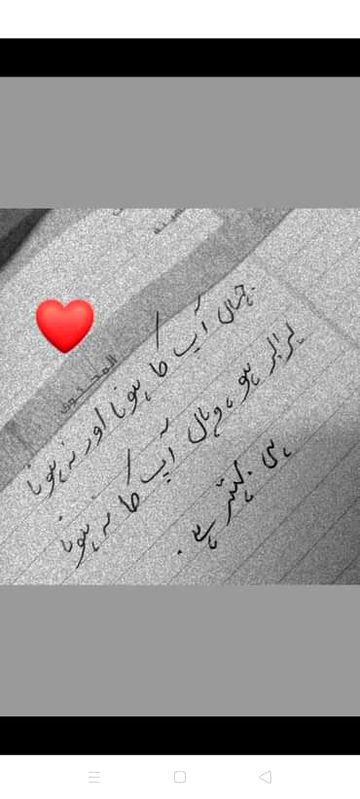 المحتوى
جہاں آپ کا ہونا اور نہ ہونا
برابر ہو، وہاں آپ کا نہ ہونا
ہی بہتر ہے۔